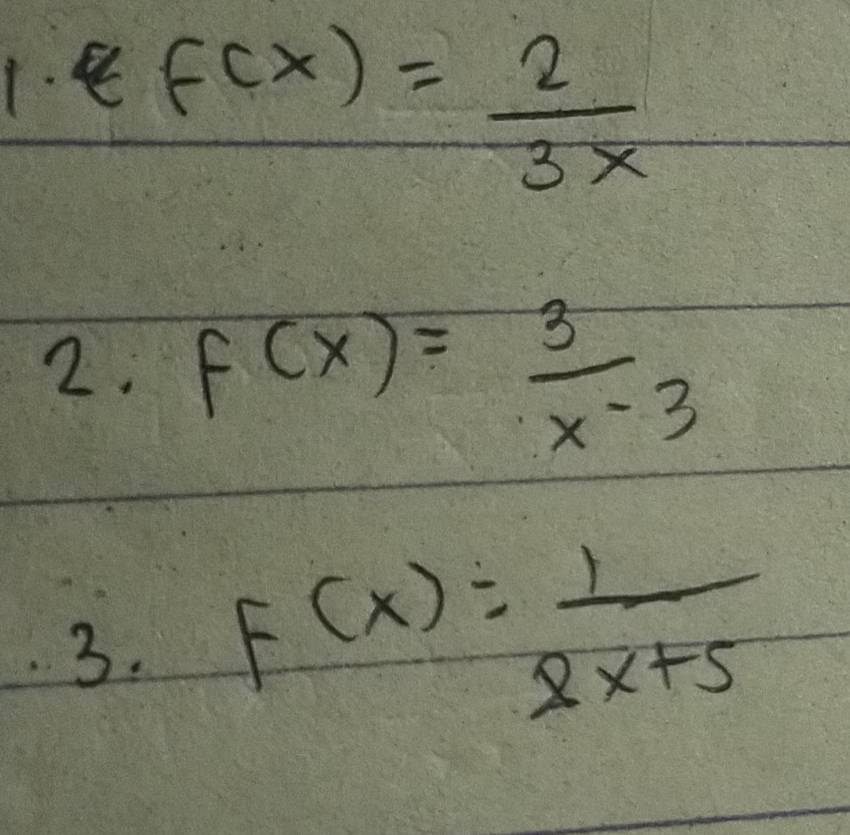 1. F(x) = 2/3x
2. F(x) = 3/x-3
3. F(x) = 1/2x+5